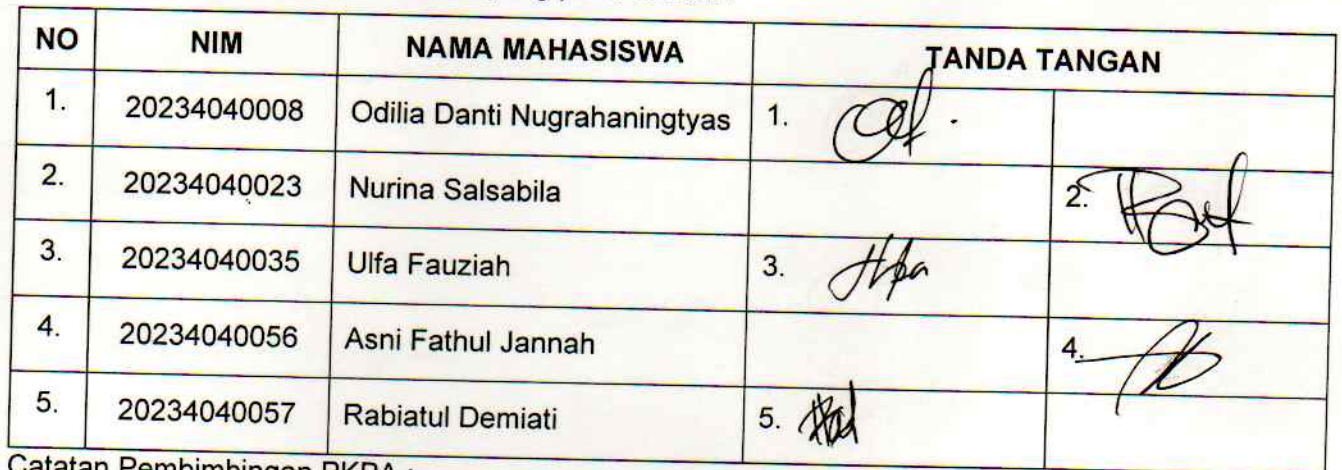 NO NIM NAMA MAHASISWA TANDA TANGAN
1. 20234040008 Odilia Danti Nugrahaningtyas 1.
2. 20234040023 Nurina Salsabila 2.
3. 20234040035 Ulfa Fauziah 3.
4. 20234040056 Asni Fathul Jannah 4.
5. 20234040057 Rabiatul Demiati 5.
Catatan Pembimbingan PKPA